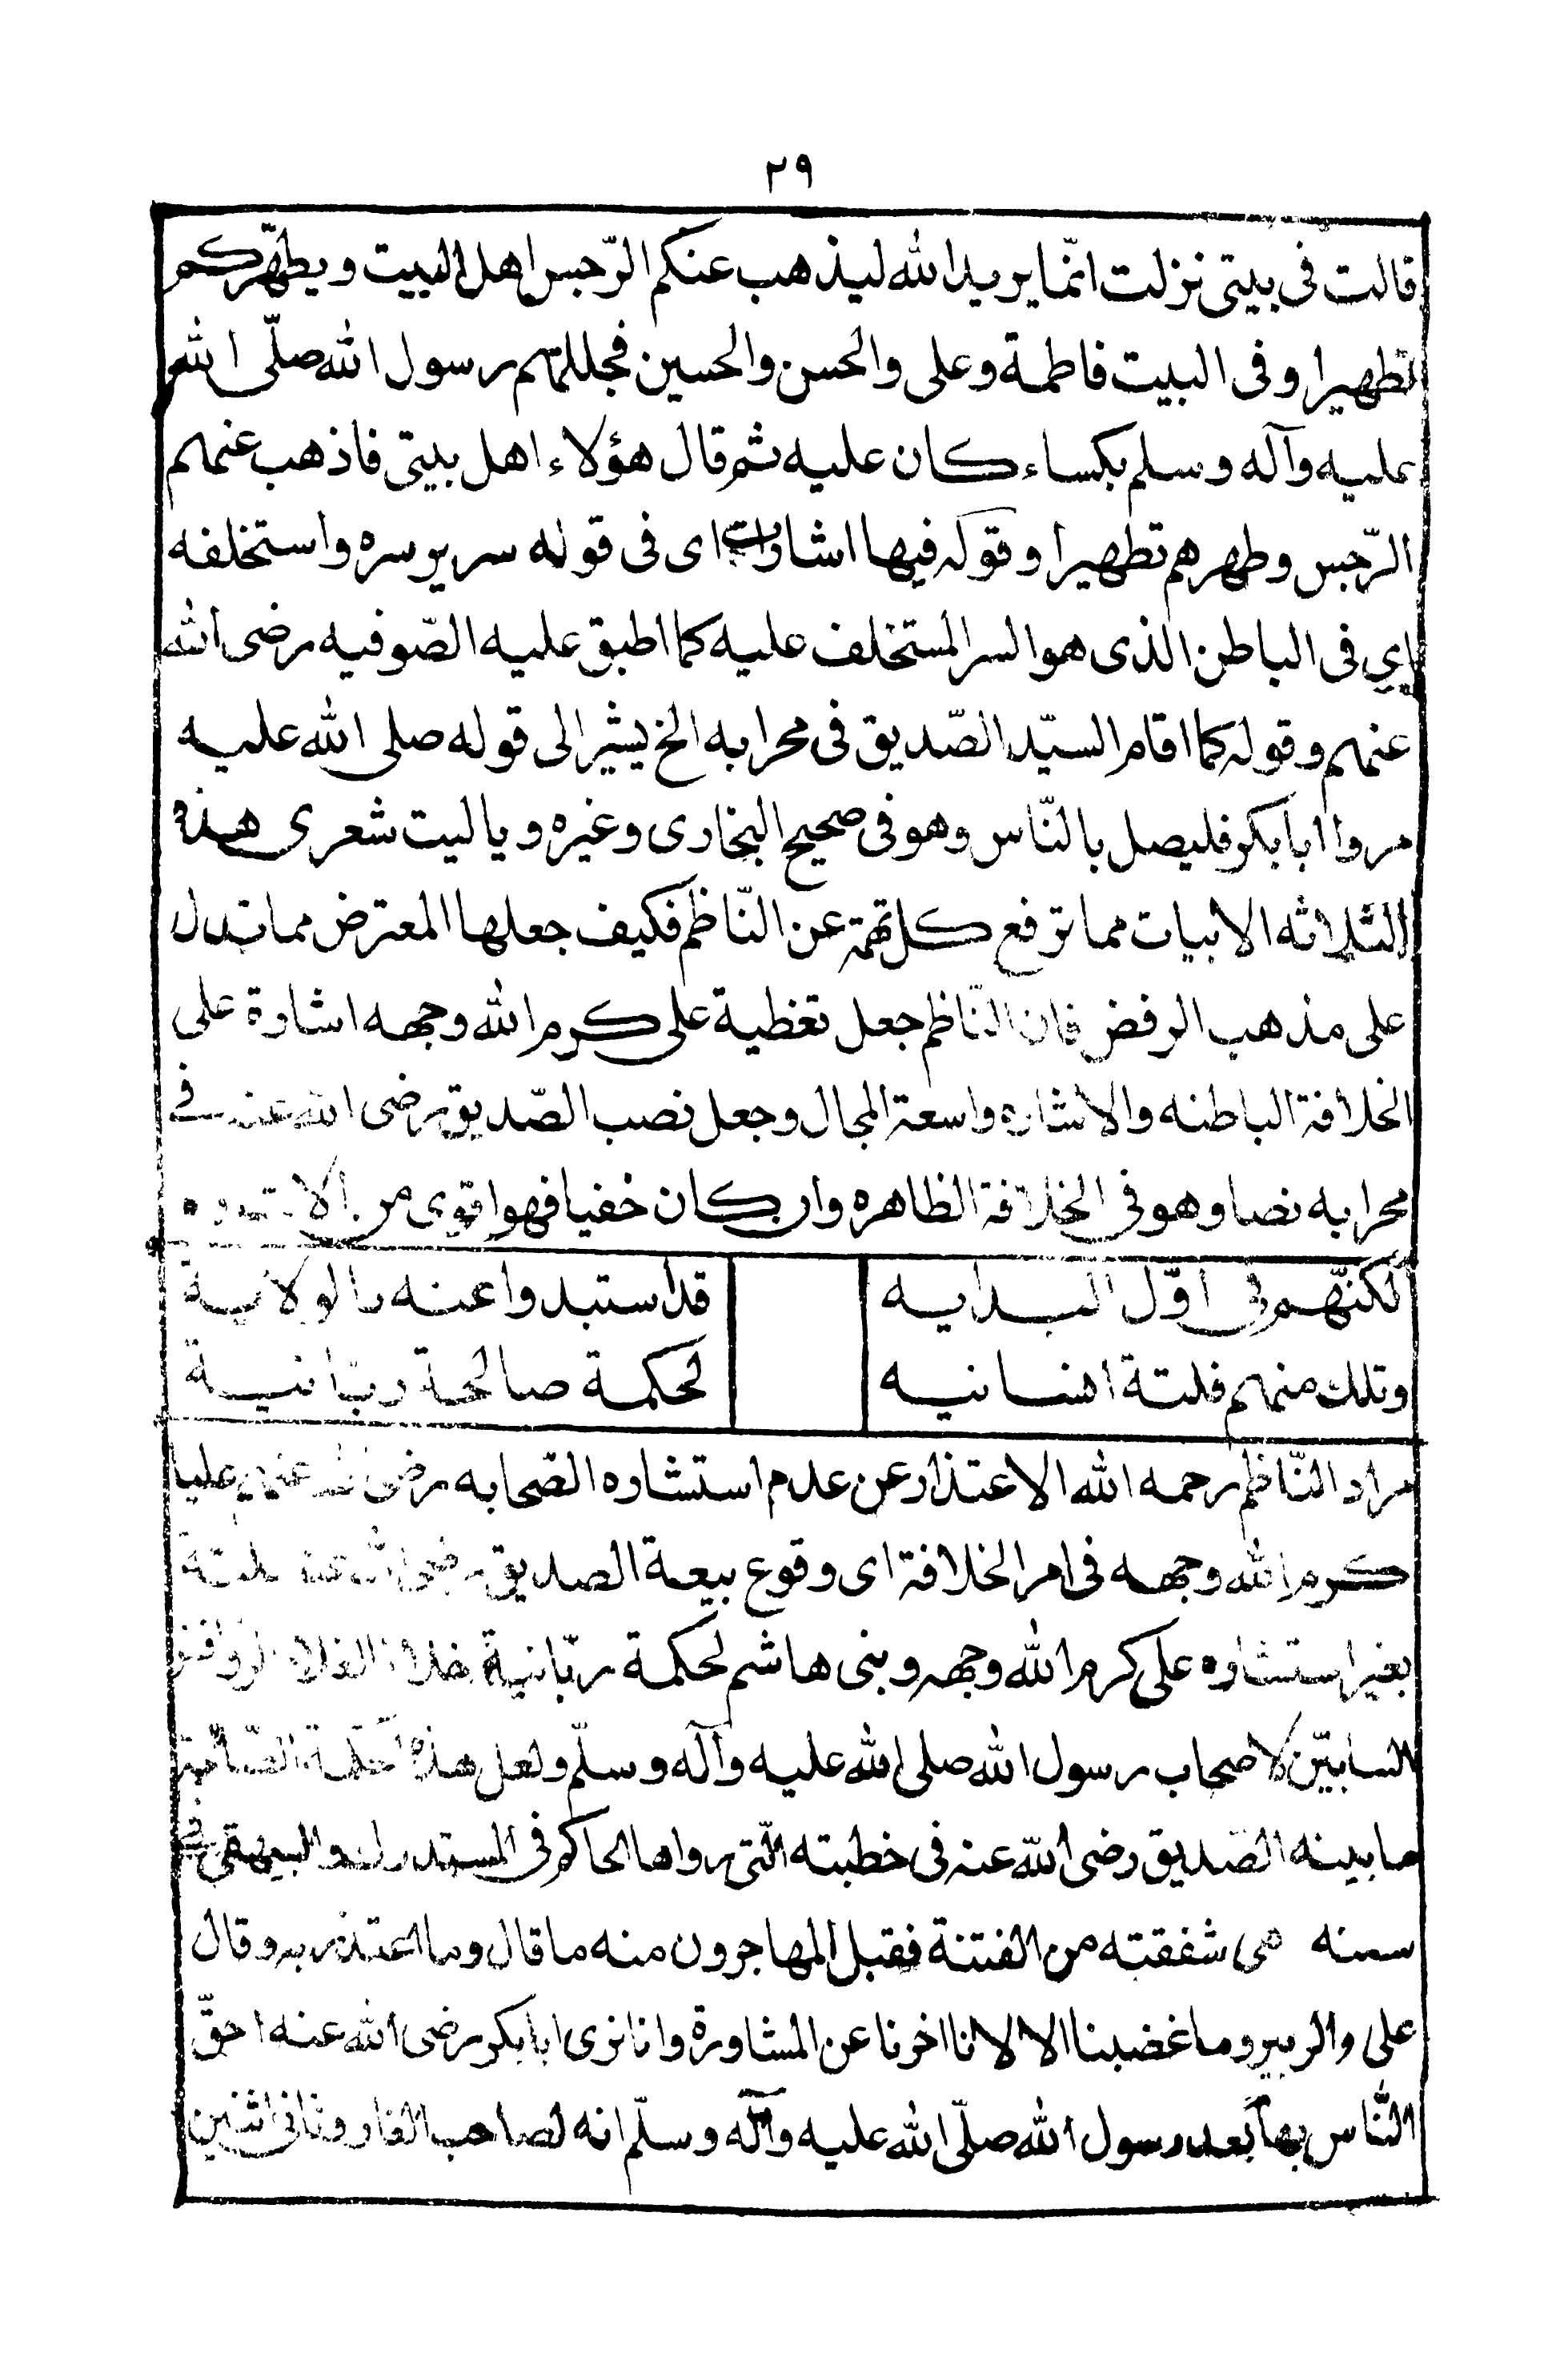 ٢٩
قالت فى بيتى نزلت انّما يريد الله ليذهب عنكم الرّجس اهل البيت ويطهّركم
تطهيرا وفى البيت فاطمة وعلى والحسن والحسين فجللهم رسول الله صلّى الله
عليه وآله وسلم بكساء كان عليه ثم قال هؤلاء اهل بيتى فاذهب عنهم
الرّجس وطهرهم تطهيرا وقوله فيها اشارات اى فى قوله سرير سره واستخلفه
اي فى الباطن الذى هو السر المستخلف عليه كما اطبق عليه الصّوفيه رضى الله
عنهم وقوله كما اقام السيّد الصّديق فى محرابه الخ يشير الى قوله صلى الله عليه
مروا ابا بكر فليصل بالنّاس وهو فى صحيح البخارى وغيره ويا ليت شعرى هذه
الثلاثه الابيات مما ترفع كل تهمة عن النّاظم فكيف جعلها المعترض مما تدل
على مذهب الرفض فان النّاظم جعل تغطية على كرم الله وجهه اشارة على
الخلافة الباطنه والاشاره واسعة المجال وجعل نصب الصّديق رضى الله عنه فى
محرابه نصا وهو فى الخلافة الظاهره وان كان خفيا فهو اقوى من
لكنّهم فى اوّل البدايه قد استبدوا عنه بالولاية
وتلك منهم فلتة انسانيه لحكمة صالحة ربّانية
مراد النّاظم رحمه الله الاعتذار عن عدم استشاره الصّحابه رضى الله عنهم عليا
كرم الله وجهه فى امر الخلافة اى وقوع بيعة الصديق رضى الله عنه فلتة
بغير استشاره على كرم الله وجهه وبنى هاشم لحكمة ربّانية خلافا لغلاة الروافض
السابّين لاصحاب رسول الله صلى الله عليه وآله وسلّم ولعل هذه الحكمة الصّالحة
ما بينه الصّديق رضى الله عنه فى خطبته الّتى رواها الحاكم فى المستدرك والبيهقى فى
سننه من شفقته من الفتنة فقبل المهاجرون منه ما قال وما اعتذر به وقال
على والزبير وما غضبنا الا لانا اخرنا عن المشاورة وانا نرى ابا بكر رضى الله عنه احقّ
النّاس بها بعد رسول الله صلّى الله عليه وآله وسلّم انه لصاحب الغار وثانى اثنين